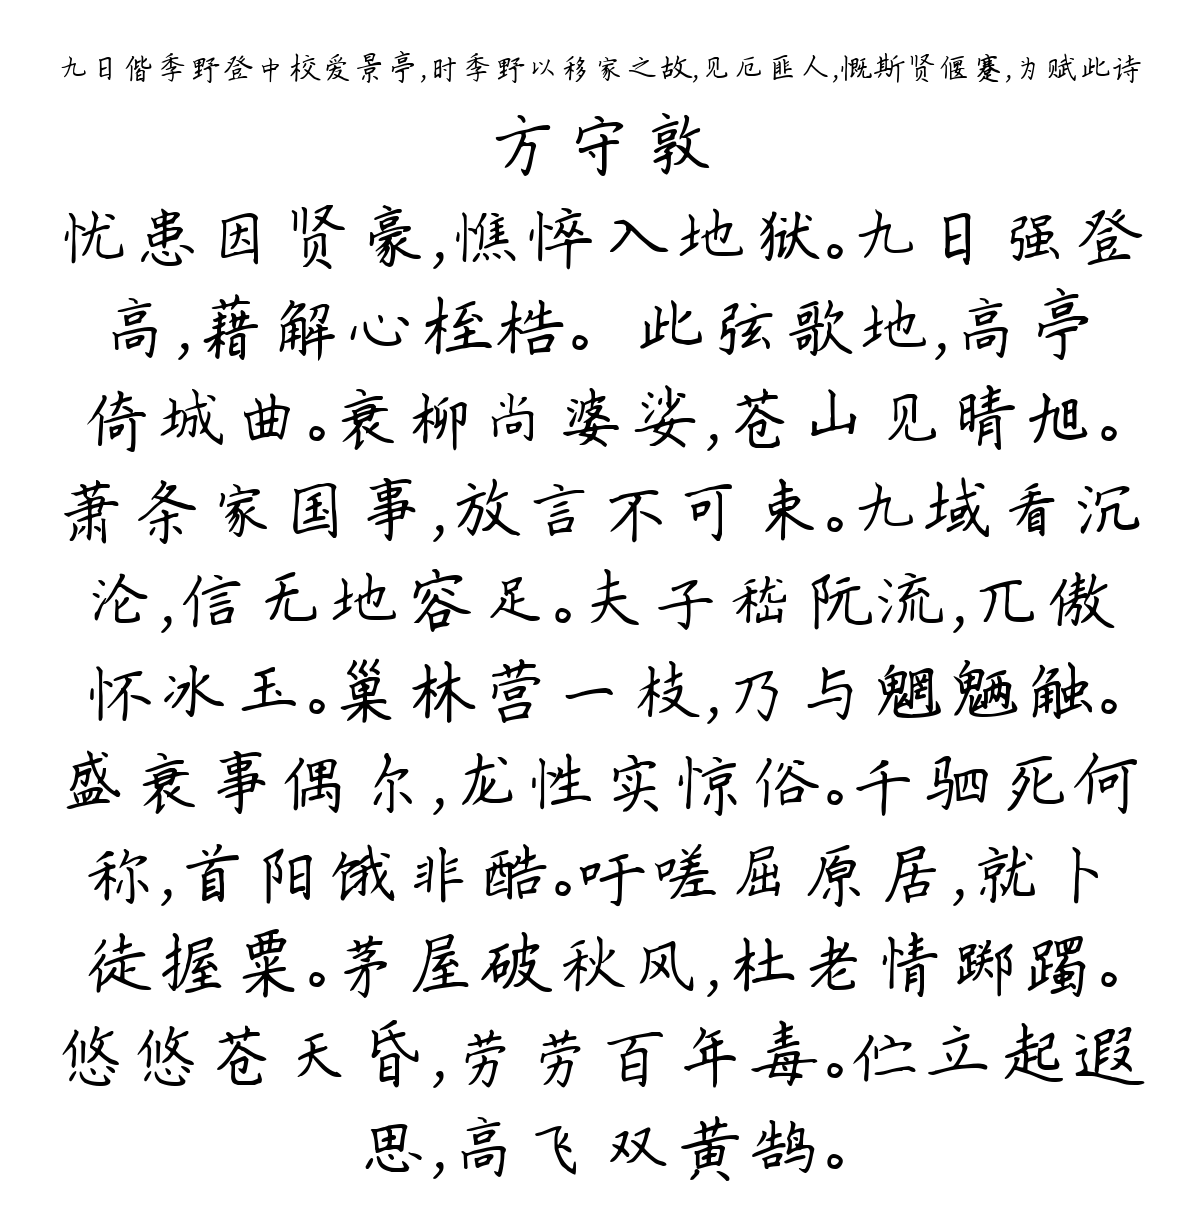 九日偕季野登中校爱景亭,时季野以移家之故,见厄匪人,慨斯贤偃蹇,为赋此诗
方守敦
忧患因贤豪,憔悴入地狱。九日强登
高,藉解心桎梏。此弦歌地,高亭
倚城曲。衰柳尚婆娑,苍山见晴旭。
萧条家国事,放言不可束。九域看沉
沦,信无地容足。夫子嵇阮流,兀傲
怀冰玉。巢林营一枝,乃与魍魉触。
盛衰事偶尔,龙性实惊俗。千驷死何
称,首阳饿非酷。吁嗟屈原居,就卜
徒握粟。茅屋破秋风,杜老情踯躅。
悠悠苍天昏,劳劳百年毒。伫立起遐
思,高飞双黄鹄。